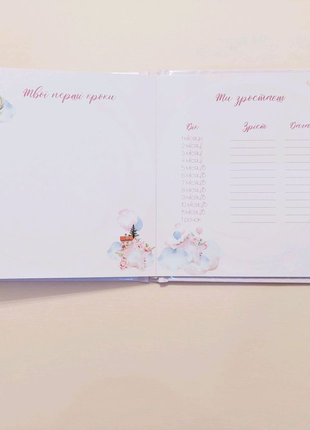 Твої перші кроки
Ти зростаєш
Вік Зріст
1 місяць
2 місяці
3 місяці
4 місяці
5 місяців
6 місяців
7 місяців
8 місяців
9 місяців
10 місяців
11 місяців
1 рочок